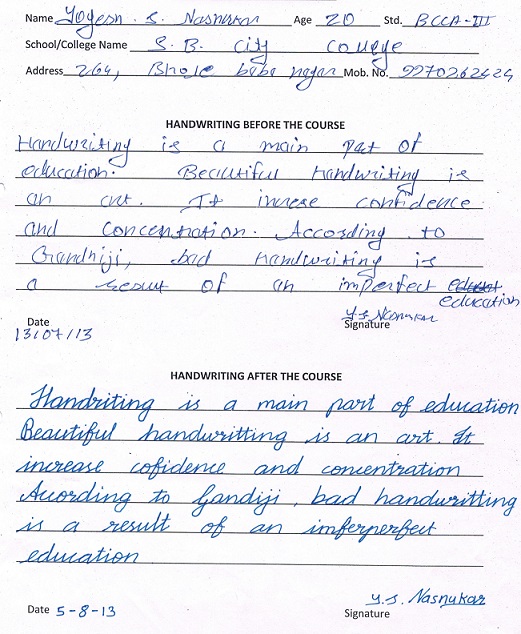 Name Yogesh . S. Nasnukar Age 20 Std. BCCA-III
School/College Name S. B. city college
Address 264, Bhole baba nagar Mob. No. 9970262424
HANDWRITING BEFORE THE COURSE
Handwriting is a main part of
education. Beautiful Handwriting is
an art. It increse confidence
and Concentration. According to
Grandhiji, bad Handwriting is
a result of an imperfect
education
Date
13/07/13
Y.S. Nasnukar
Signature
HANDWRITING AFTER THE COURSE
Handriting is a main part of education
Beautiful handwritting is an art. It
increase cofidence and concentration
Acording to Gandiji, bad handwritting
is a result of an imferperfect
education
Date 5-8-13
Y.S. Nasnukar
Signature